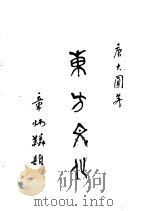 唐大圓著
東方文化
章炳麟題